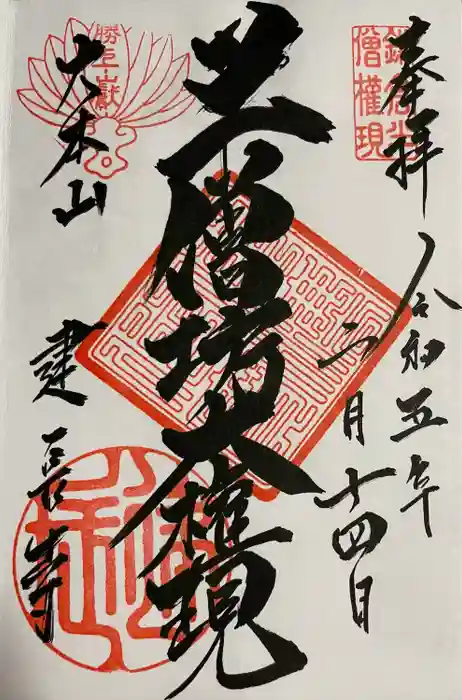 奉拝
令和五年
二月十四日
鎌倉半
僧權現
半僧坊大権現
勝上嶽
大本山
建長寺